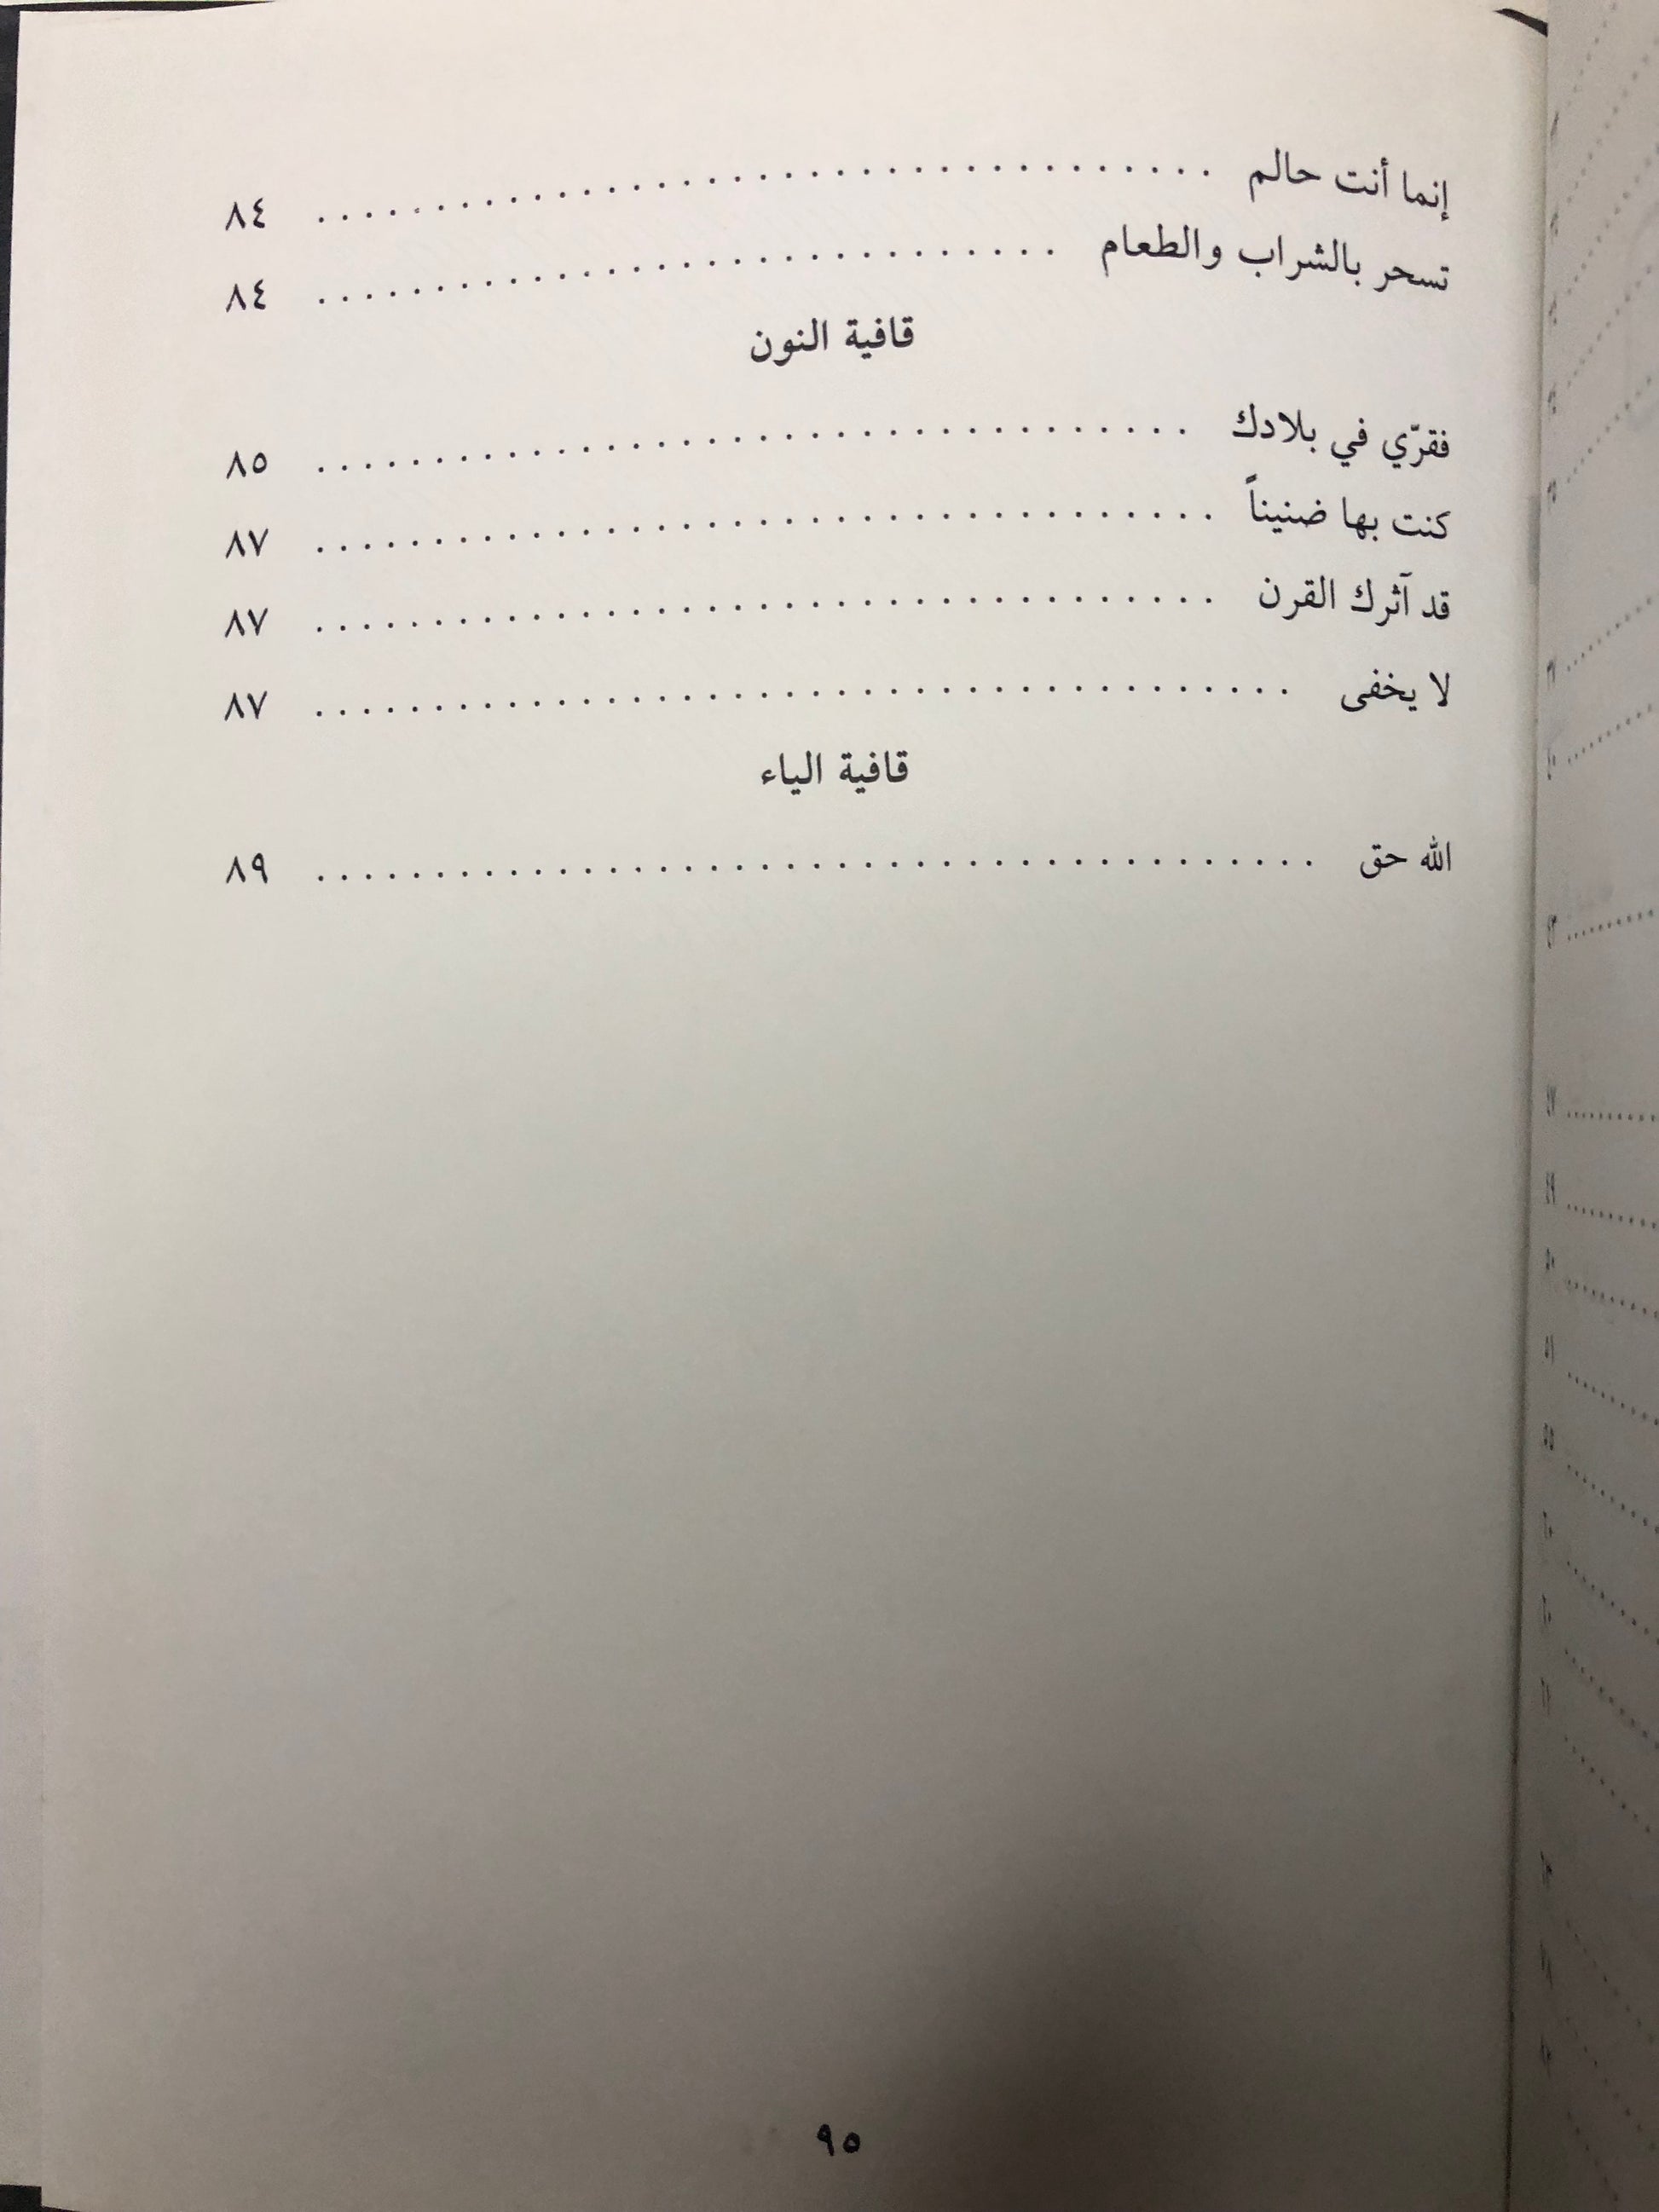 إنما أنت حالم ........................................ ٨٤
تسحر بالشراب والطعام ................................ ٨٤
قافية النون
فقرّي في بلادك ........................................ ٨٥
كنت بها ضنيناً ........................................ ٨٧
قد آثرك القرن ........................................ ٨٧
لا يخفى ........................................ ٨٧
قافية الياء
الله حق ........................................ ٨٩
٩٥